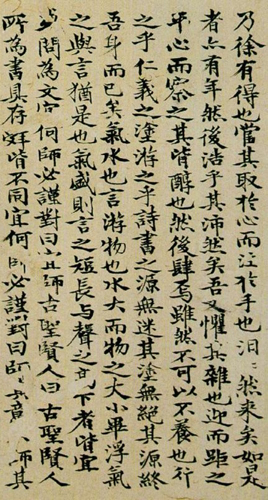 乃徐有得也當其取於心而注於手也汩〻然來矣如是
者亦有年然後浩乎其沛然矣吾又懼其雜也迎而距之
平心而察之其皆醇也然後肆焉雖然不可以不養也行
之乎仁義之塗游之乎詩書之源無迷其塗無絕其源終
吾身而已矣氣水也言游物也水大而物之大小畢浮氣
之與言猶是也氣盛則言之短長與聲之高下者皆宜
問為文宜何師必謹對曰宜師古聖賢人曰古聖賢人
所為書具存辭皆不同宜何師必謹對曰師意師其